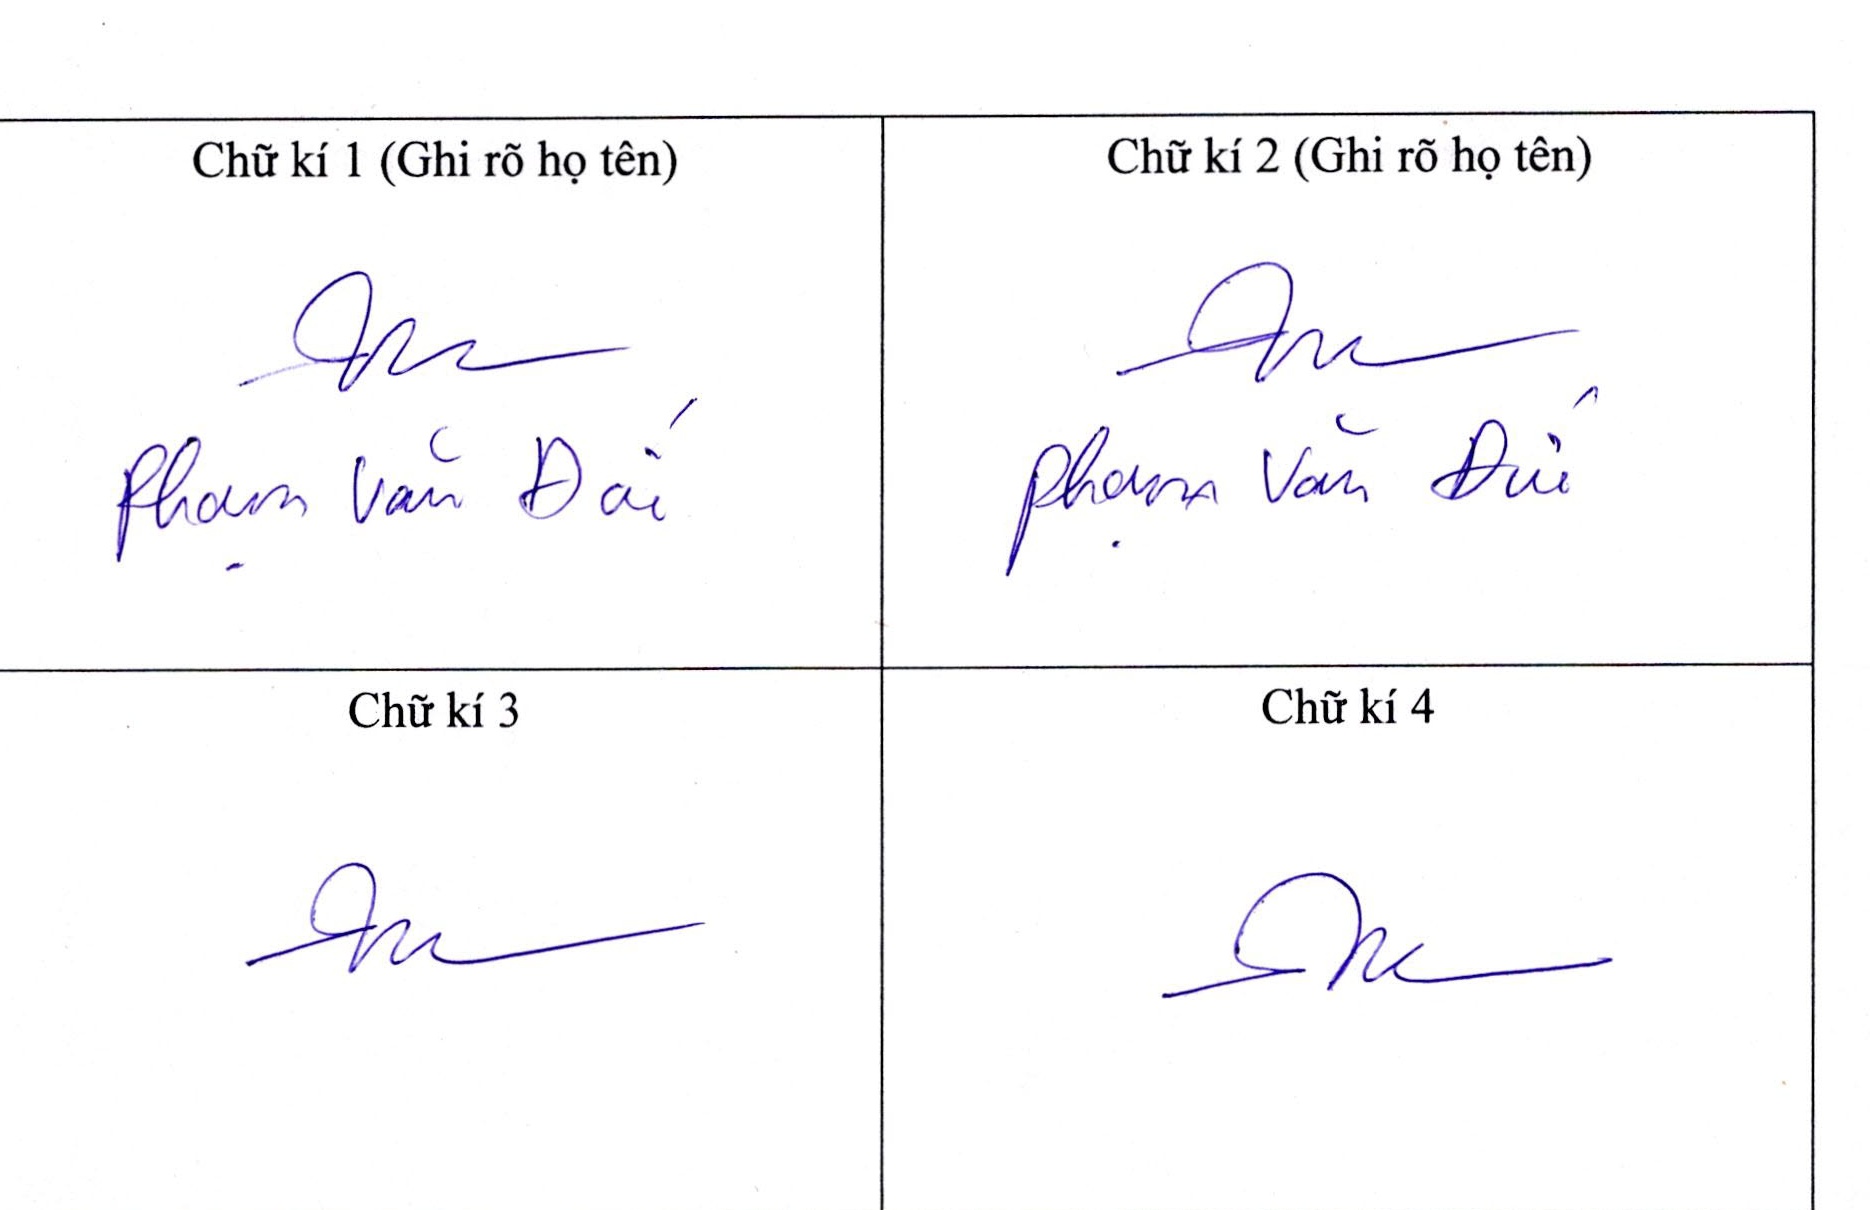 Chữ kí 1 (Ghi rõ họ tên)
Chữ kí 2 (Ghi rõ họ tên)
Phạm Văn
Phạm Văn
Chữ kí 3
Chữ kí 4